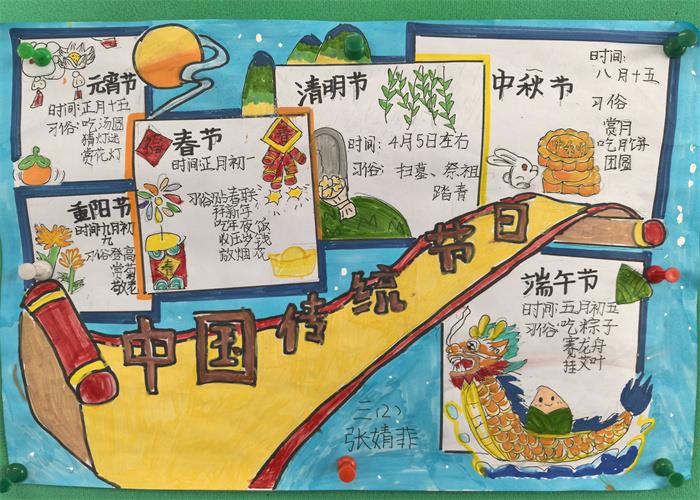 元宵节
时间:正月十五
习俗:吃汤圆
猜灯谜
赏花灯
春
春
春节
时间:正月初一
习俗:贴春联
拜新年
吃年夜饭
收压岁钱
放烟花
春
清明节
时间:4月5日左右
习俗:扫墓、祭祖
踏青
中秋节
时间:
八月十五
习俗
赏月
吃月饼
团圆
重阳节
时间:九月初九
习俗:登高
赏菊
敬老
中国传统节日
端午节
时间:五月初五
习俗:吃粽子
赛龙舟
挂艾叶
三(2)
张婧菲